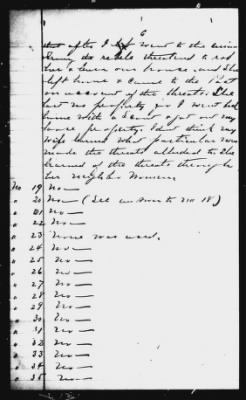 6
that after I left went to the union
Army the rebels threatened to rob
her & burn our house, and she
left home & came to the
on account of the threats. She
lost no property, for I went back
home with a Scout & got out my
loose property. I dont think my
wife knew what particular men
made the threats alluded to. She
learned of the threats through
her neighbor Women.
No 19 No —
" 20 No — (See answer to No 18)
" 21 No —
" 22 No —
" 23 None was used.
" 24 No —
" 25 No —
" 26 No —
" 27 No —
" 28 No —
" 29 No —
" 30 No —
" 31 No —
" 32 No —
" 33 No —
" 34 No —
" 35 No —